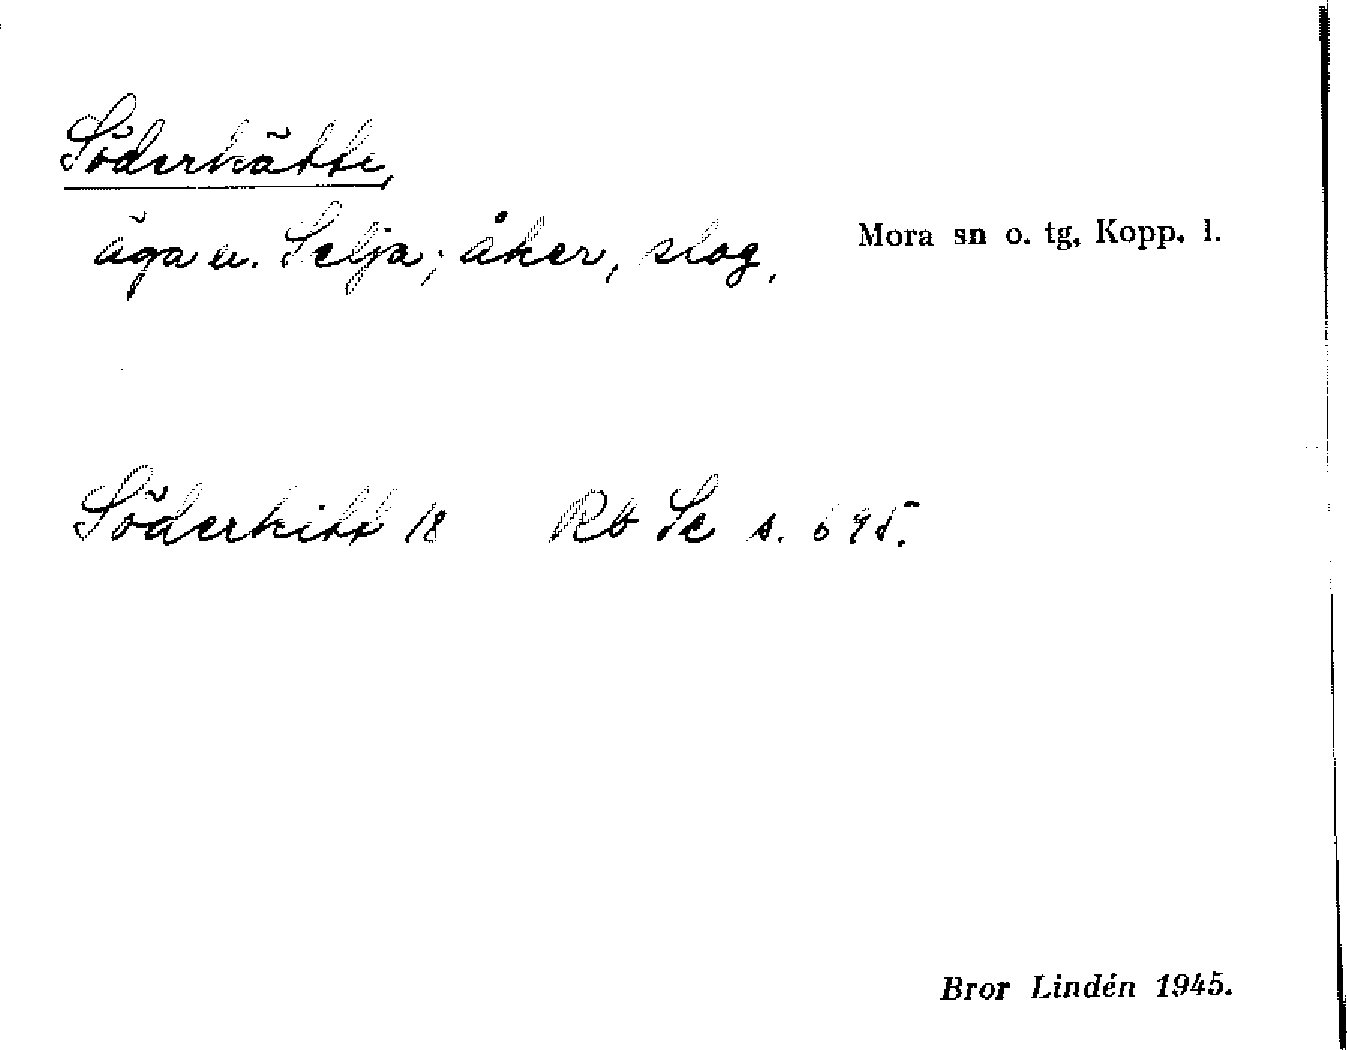 Söderkätte,
äga u. Selja; åker, slog,
Mora sn o. tg, Kopp. l.
Söderkitt 18 Rb Se s. 695.
Bror Lindén 1945.